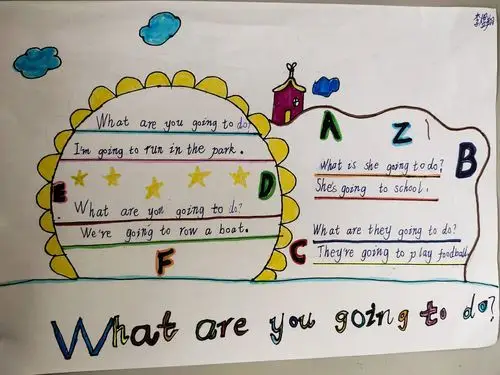 What are you going to do?
I'm going to run in the park.
What are you going to do?
We're going to row a boat.
A
Z
B
E
D
F
C
What is she going to do?
She's going to school.
What are they going to do?
They're going to play foodball
What are you going to do?